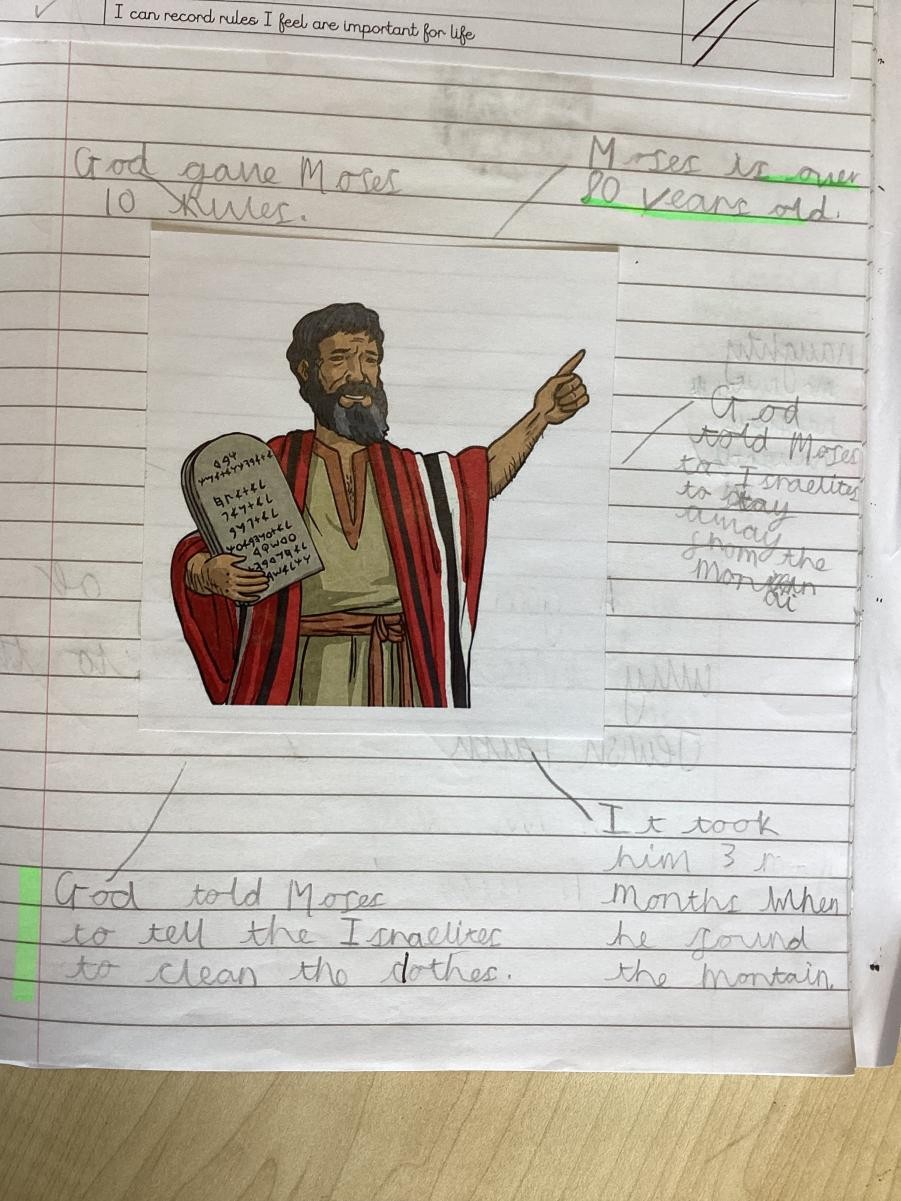 I can record rules I feel are important for life
God gave Moses
10 Rules.
Moses is over
80 years old.
God
told Moses
to Israelites
to stay
away
from the
God told Moses
to tell the Israelites
to clean the clothes.
It took
him 3
months when
he found
the montain.